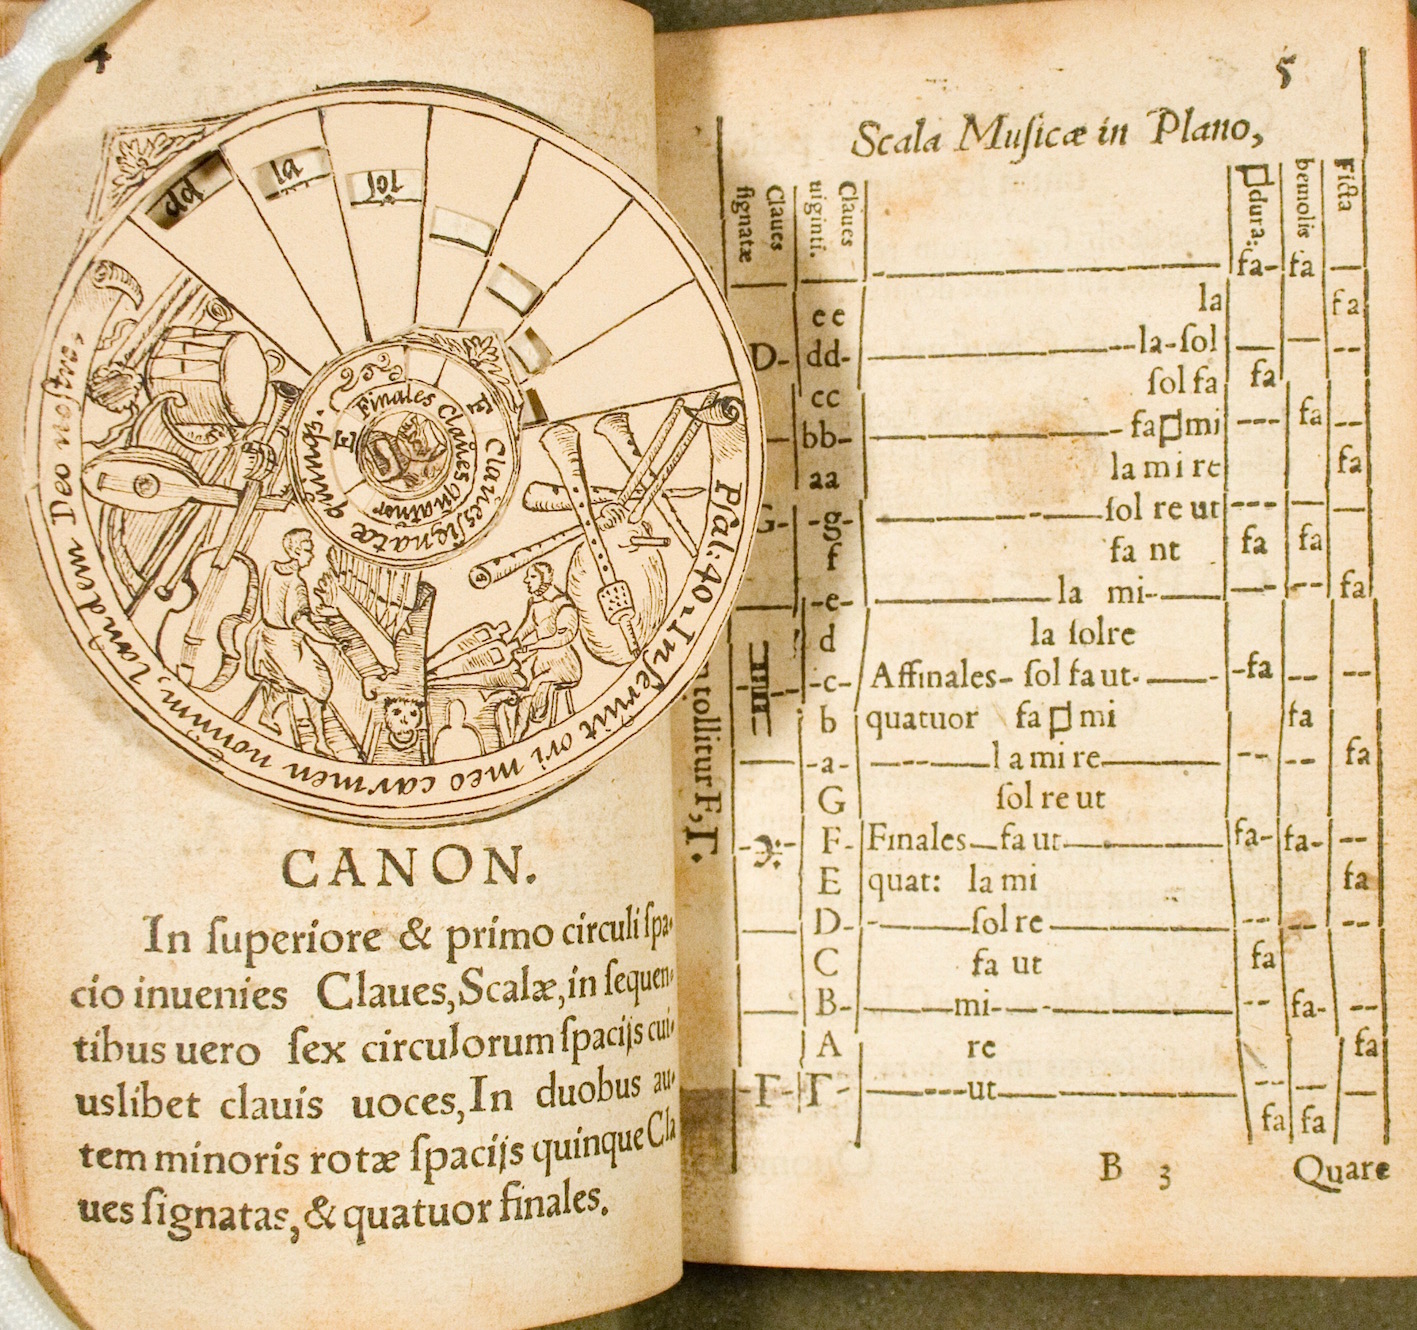 4
dd
la
ſol
Pſal: 40. Inſeruit ori meo carmen nouum, laudem Deo noſtro.
Claues ſignatæ quinqȝ.
Finales Claues quatuor
F
E
CANON.
In ſuperiore & primo circuli ſpa-
cio inuenies Claues, Scalæ, in ſequen-
tibus uero ſex circulorum ſpacijs cui-
uslibet clauis uoces, In duobus au-
tem minoris rotæ ſpacijs quinque Cla
ues ſignatas, & quatuor finales.
5
Scala Muſicæ in Plano,
Claues ſignatæ
Claues uiginti.
♮dura.
bemolis
Ficta
fa- fa
ee la fa
D- dd- la-ſol
cc ſol fa fa
bb- fa♮mi fa
aa la mi re fa
G- -g- ſol re ut
f fa nt fa fa
-e- la mi- fa
d la ſolre
-c- Affinales- ſol fa ut. -fa
b quatuor fa♮mi fa
-a- la mi re fa
G ſol re ut
F- Finales fa ut fa- fa-
E quat: la mi fa
D- ſol re
C fa ut fa
B- mi- fa-
A re fa
-Γ- Γ- ut
fa fa
tollitur F, Γ.
B 3 Quare